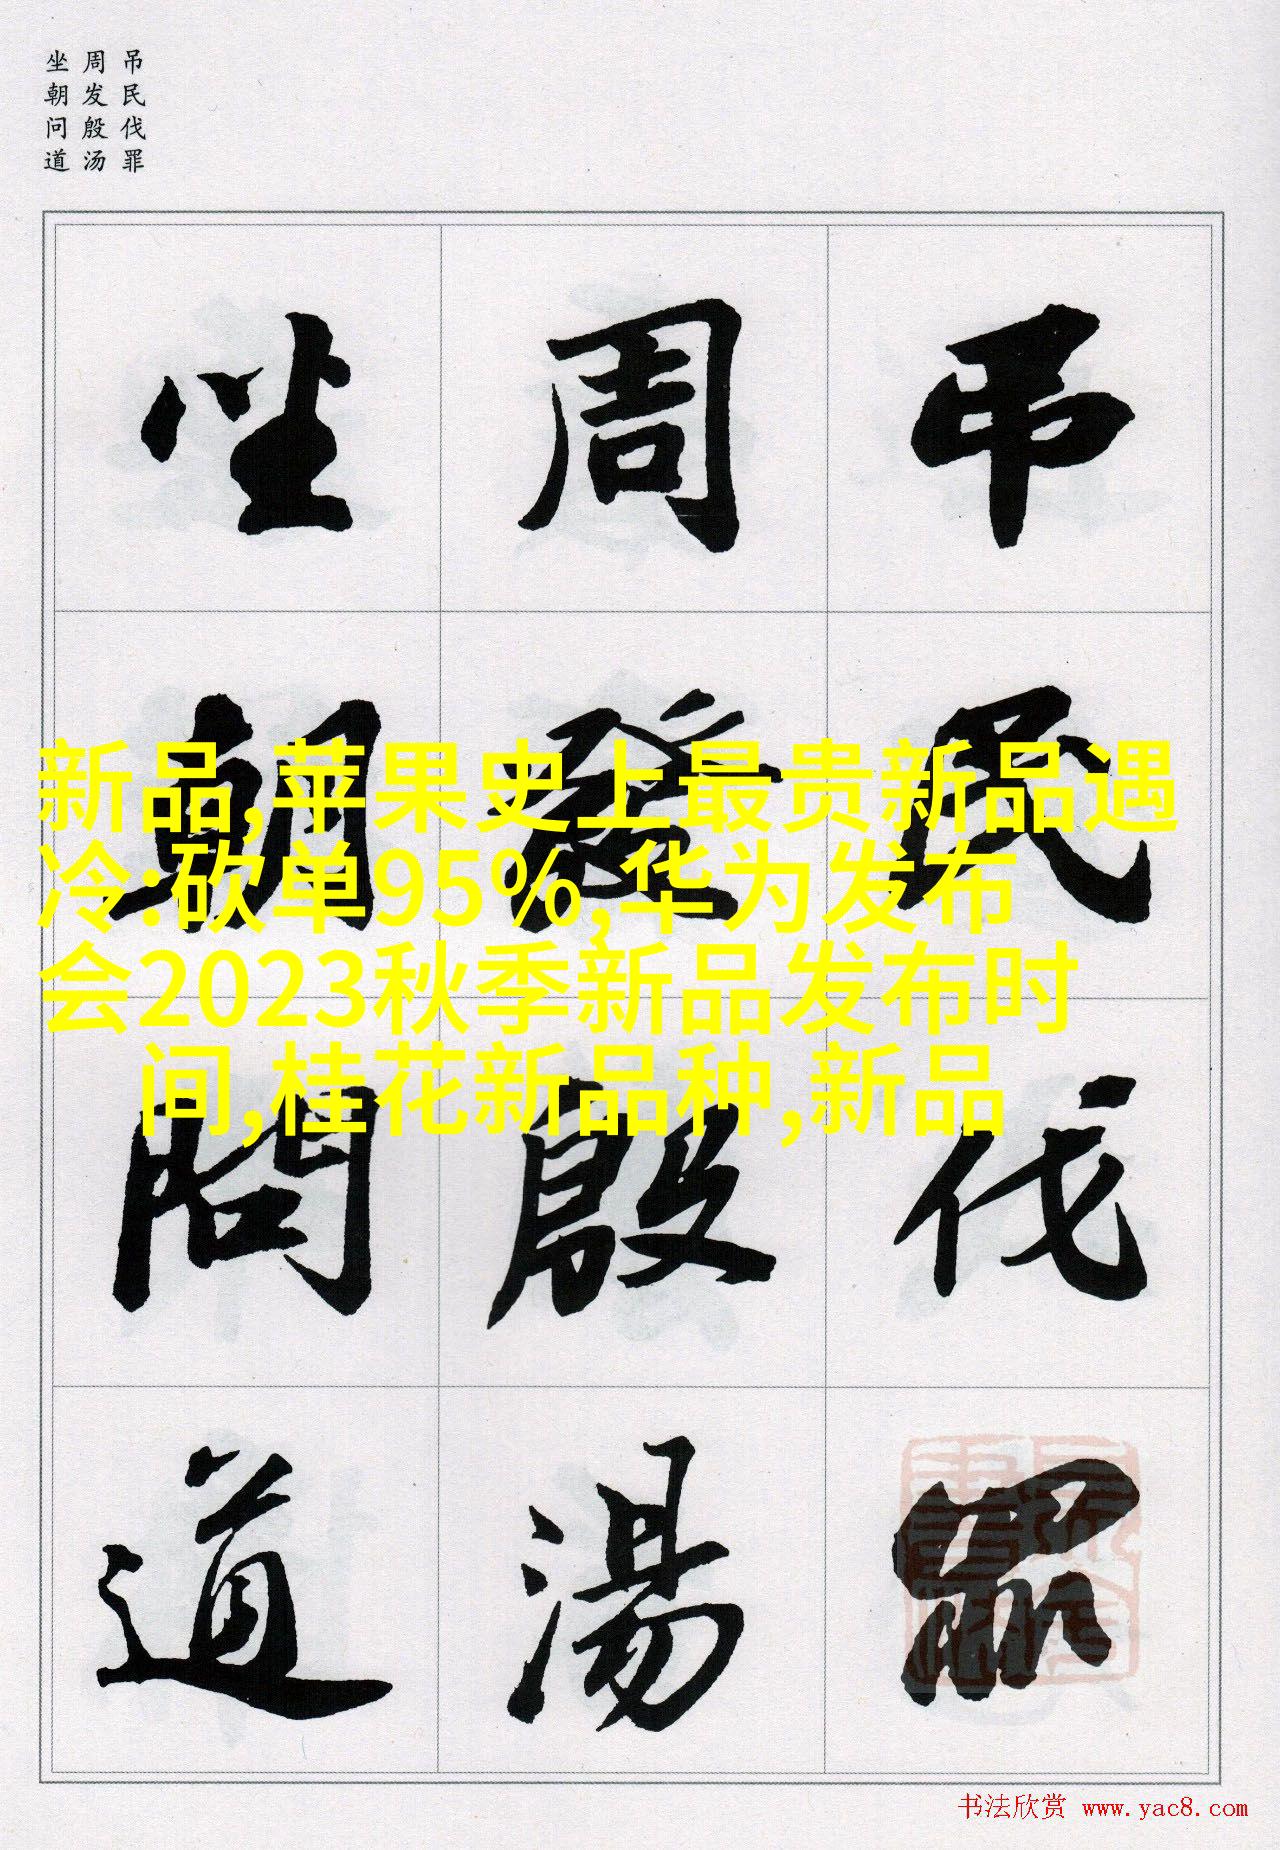 吊民伐罪
周发殷汤
坐朝问道
吊民伐罪
周發殷湯
坐朝問道
新品,苹果史上最贵新品遇
冷:砍单95%,华为发布
会2023秋季新品发布时
间,桂花新品种,新品
书法欣赏 www.yac8.com